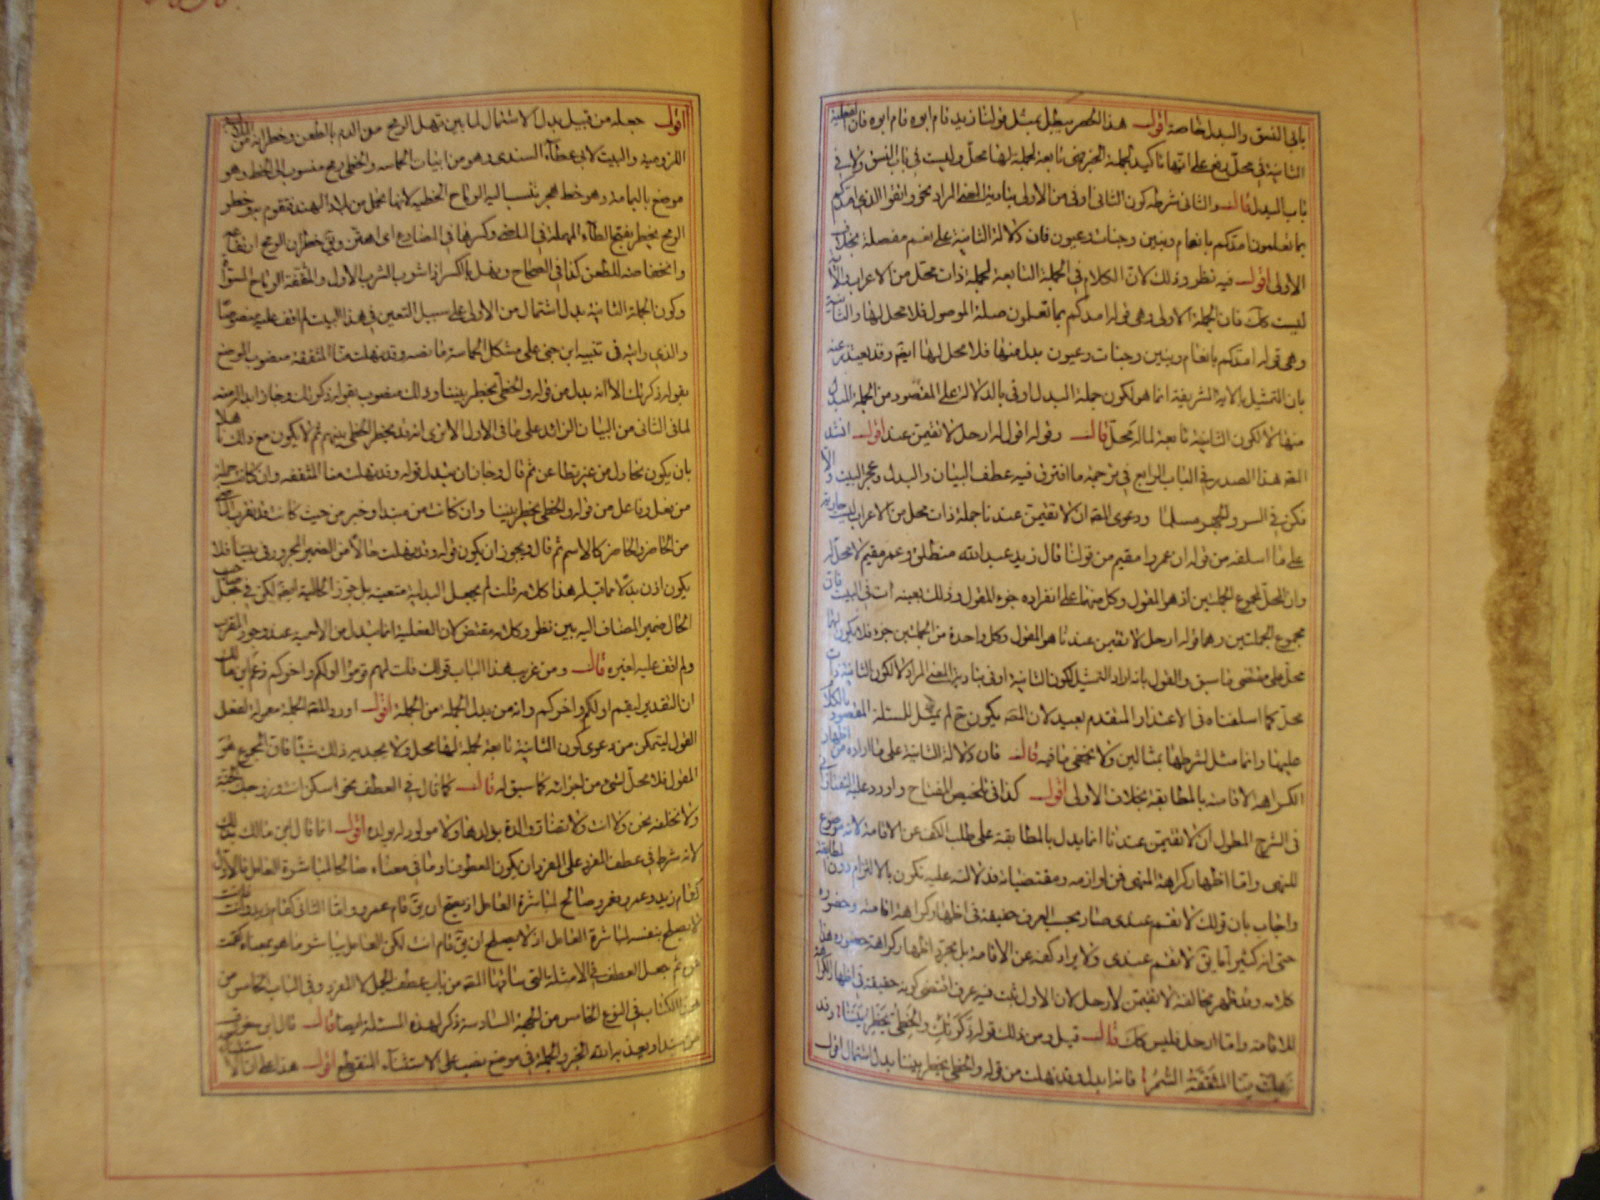 بابي النسق والبدل خاصة اقول هذا الحصر يبطل بمثل قولنا زيد قام ابوه قام ابوه فان لفظية
الثانية في محل رفع على انها تأكيد لجملة الخبر فهي تابعة لجملة لها محل وليست في باب النسق ولا في
باب البدل قال والثاني شرطه كون الثاني اوفى من الاولى بتأدية المعنى المراد نحو واتقوا الذي امدكم
بما تعلمون امدكم بانعام وبنين وجنات وعيون فان دلالة الثانية على نعم مفصلة بخلاف
الاولى اقول فيه نظر وذلك لان الكلام في الجملة التابعة لجملة ذات محل من الاعراب والآية
ليست كك فان الجملة الاولى وهي قوله امدكم بما تعلمون صلة الموصول فلا محل لها والثانية
وهي قوله امدكم بانعام وبنين وجنات وعيون بدل منها فلا محل لها ايضا وقد يعتذر عنه
بان التمثيل بالاية الشريفة انما هو لكون جملة البدل اوفى بالدلالة على المقصود من الجملة المبدل
منها لا لكون الثانية تابعة لما له محل قال وقوله اقول له ارحل لا تقيمن عندنا اقول انشد
المص هذا الصدر في الباب الرابع في ترجمة ما افترق فيه عطف البيان والبدل وعجز البيت والا
فكن في السر والجهر مسلما ودعوى المص ان لا تقيمن عندنا جملة ذات محل من الاعراب ليست جارية
على ما اسلفه من قوله ان عمروا مقيم من قولنا قال زيد عبد الله منطلق وعمرو مقيم لا محل له
وان المحل لمجموع الجملتين اذ هو المقول وكل منهما على انفراده جزء المقول وذلك بعينه ات في البيت فان
مجموع الجملتين وهما قوله ارحل لا تقيمن عندنا هو المقول وكل واحدة من الجملتين جزء فلا يكون لهما
محل على مقتضى ما سبق والقول بانه اراد التمثيل لكون الثانية اوفى بتأدية المعنى المراد لا لكون الثانية ذات
محل كما اسلفناه في الاعتذار المتقدم بعيد لان المص يكون ح لم يمثل للمسئلة المقصود بالكلام
عليها وانما مثل لشرطها بمثالين ولا يخفى ما فيه قال فان دلالة الثانية على ما اراده من اظهار
الكراهة لاقامته بالمطابقة بخلاف الاولى اقول كذا في تلخيص المفتاح واورد عليه التفتازاني
في الشرح المطول ان لا تقيمن عندنا انما يدل بالمطابقة على طلب الكف عن الاقامة لانه موضوع
للنهي واما اظهار كراهة المنهي فمن لوازمه ومقتضياته فدلالته عليه تكون بالالتزام دون المطابقة
واجاب بان قولك لا تقم عندي صار بحسب العرف حقيقة في اظهار كراهة اقامته وحضوره
حتى انه كثيرا ما يق لا تقم عندي ولا يراد كفه عن الاقامة بل مجرد اظهار كراهة حضوره هذا
كلامه وقد ظهر مخالفة لا تقيمن لارحل لان الاول ثبت فيه عرف اقتضى كونه حقيقة في اظهار الكراهة
للاقامة واما ارحل فليس كك قال قيل ومن ذلك قوله ذكرتك والخطي يخطر بيننا وقد
نهلت منا المثقفة السمر فانه ابدل وقد نهلت من قوله والخطي يخطر بيننا بدل اشتمال اقول
اقول جعله من قبيل بدل الاشتمال لما بين نهل الرمح من الدم بالطعن وخطرانه من الملابسة
اللزومية والبيت لابي عطاء السندي وهو من ابيات الحماسة والخطي رمح منسوب الى الخط وهو
موضع باليمامة وهو خط هجر تنسب اليه الرماح الخطية لانها تحمل من بلاد الهند فتقوم به وخطر
الرمح يخطر بفتح الطاء المهملة في الماضي وكسرها في المضارع اي اهتز ويق خطران الرمح ارتفاعه
وانخفاضه للطعن كذا في الصحاح ونهل بالكسر اذا شرب الشرب الاول والمثقفة الرماح المسواة
وكون الجملة الثانية بدل اشتمال من الاولى على سبيل التعين في هذا البيت لم اقف عليه منصوصا
والذي رايته في تنبيه ابن جني على مشكل الحماسة ما نصه وقد نهلت منا المثقفة منصوب الموضع
بقوله ذكرتك الا انه بدل من قوله والخطي يخطر بيننا وذلك منصوب بقوله ذكرتك وجاز ابداله منه
لما في الثاني من البيان الزائد على ما في الاول الا ترى انه قد يخطر الخطي بينهم ثم لا يكون مع ذلك نهلا
بان يكون تجاول من غير تطاعن ثم قال وجاز ان يبدل قوله وقد نهلت منا المثقفة وان كانت جملة
من فعل وفاعل من قوله والخطي يخطر بيننا وان كانت من مبتدأ وخبر من حيث كانت قد تقرب الماضي
من الحاضر والحاضر كالاسم ثم قال ويجوز ان يكون قوله وقد نهلت حالا من الضمير المجرور في بيننا فلا
يكون اذن بدلا مما قبله هذا كلامه قلت لم يجعل البدلية متعينة بل جوز الحالية ايضا لكن في جعل صاحب
الحال ضمير المضاف اليه بين نظر وكلامه مقتض لان الفعلية انما تبدل من الاسمية عند وجود المقرب
ولم اقف عليه لغيره قال ومن غريب هذا الباب قولك قلت لهم قوموا اولكم واخركم زعم ابن مالك
ان التقدير ليقم اولكم واخركم وانه من بدل الجملة من الجملة اقول اورد المص الجملة معمولة لفعل
القول ليتمكن من دعوى كون الثانية تابعة لجملة لها محل ولا يجديه ذلك شيئا فان المجموع هو
المقول فلا محل لشئ من اجزائه كما سبق له قال كما قال في العطف نحو اسكن انت وزوجك الجنة
ولا نخلفه نحن ولا انت ولا تضار والدة بولدها ولا مولود له بولده اقول انما قال ابن مالك بذلك
لانه شرط في عطف المفرد على المفرد ان يكون المعطوف او ما في معناه صالحا لمباشرة العامل فالاول
كقام زيد وعمرو فعمرو صالح لمباشرة العامل اذ يصح ان يق قام عمرو واما الثاني كقام زيد وانت فانت
لا يصلح بنفسه لمباشرة العامل اذ لا يصلح ان يق قام انت لكن العامل يباشر ما هو بمعناه كقمت
ومن ثم جعل العطف في الامثلة التي ساقها المص من باب عطف الجمل لا المفرد وفي الباب الخامس من
هذا الكتاب في النوع الخامس من الجهة السادسة ذكر لهذه المسئلة ايضا قال ابن خروف
من مبتدا ويعذبه الله الخبر والجملة في موضع نصب على الاستثناء المنقطع اقول هذا على ان الا